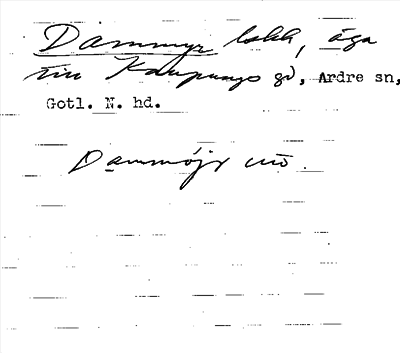 Dammyr lskk, äga
till Kaupungs gd, Ardre sn,
Gotl. N. hd.
Dammøjr